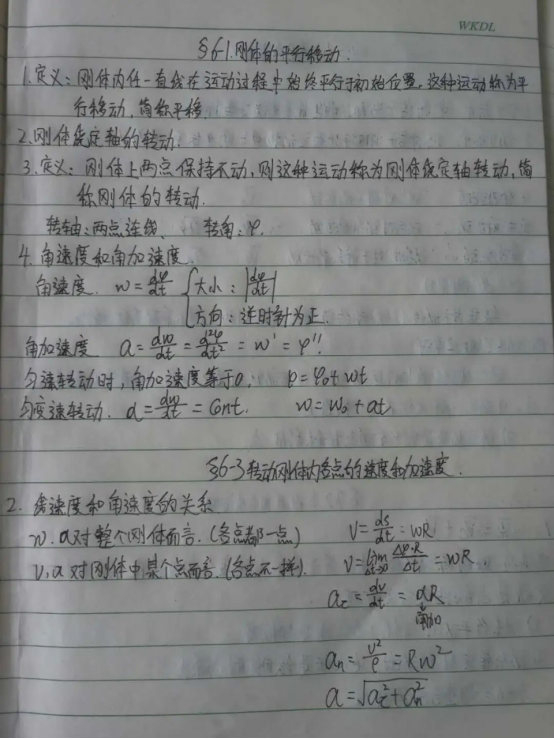 WKDL
§6-1.刚体的平行移动.
1.定义:刚体内任一直线在运动过程中始终平行于初始位置,这种运动称为平
行移动,简称平移
2.刚体绕定轴的转动.
3.定义:刚体上两点保持不动,则这种运动称为刚体绕定轴转动,简
称刚体的转动.
转轴:两点连线、 转角:φ.
4.角速度和角加速度.
角速度. w=dφ/dt {大小:|dφ/dt|
方向:逆时针为正.
角加速度 α=dw/dt=d²φ/dt²=w'=φ''.
匀速转动时,角加速度等于0. φ=φ₀+wt
匀变速转动. α=dw/dt=Cont. w=w₀+αt
§6-3转动刚体内各点的速度和加速度.
2.线速度和角速度的关系
w.α对整个刚体而言.(各点都一点) V=ds/dt=wR
V,a对刚体中某个点而言.(各点不一样). V=lim Δt→0 Δφ·R/Δt=wR
aτ=dv/dt=αR
角加
an=v²/ρ=Rw²
a=√(aτ²+an²)